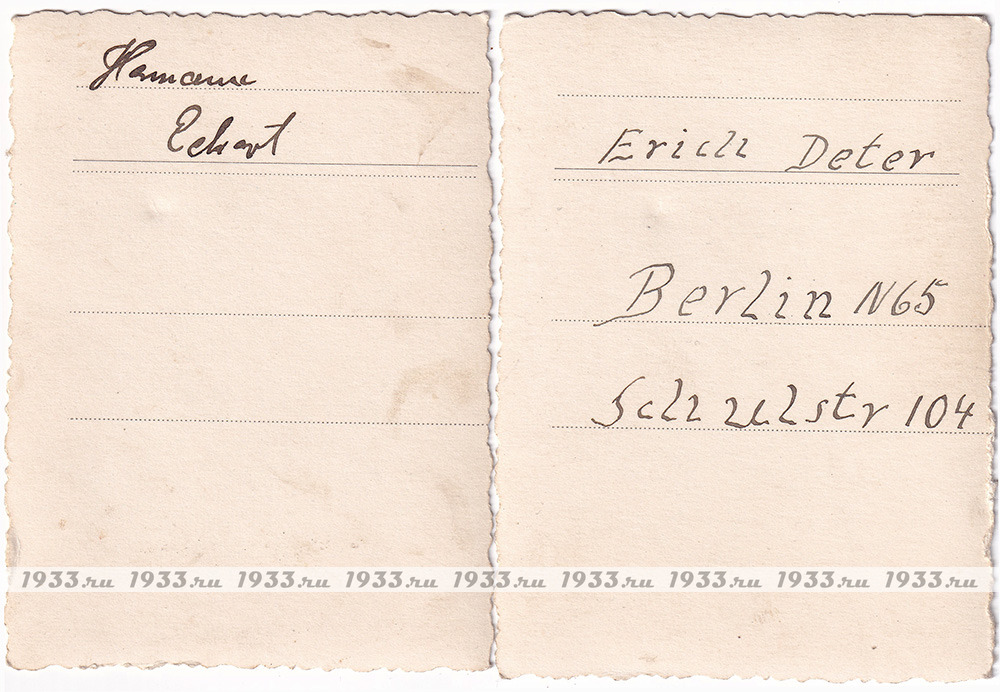 Eckart
Erich Deter
Berlin N65
Schulstr 104
1933.ru 1933.ru 1933.ru 1933.ru 1933.ru 1933.ru 1933.ru 1933.ru 1933.ru